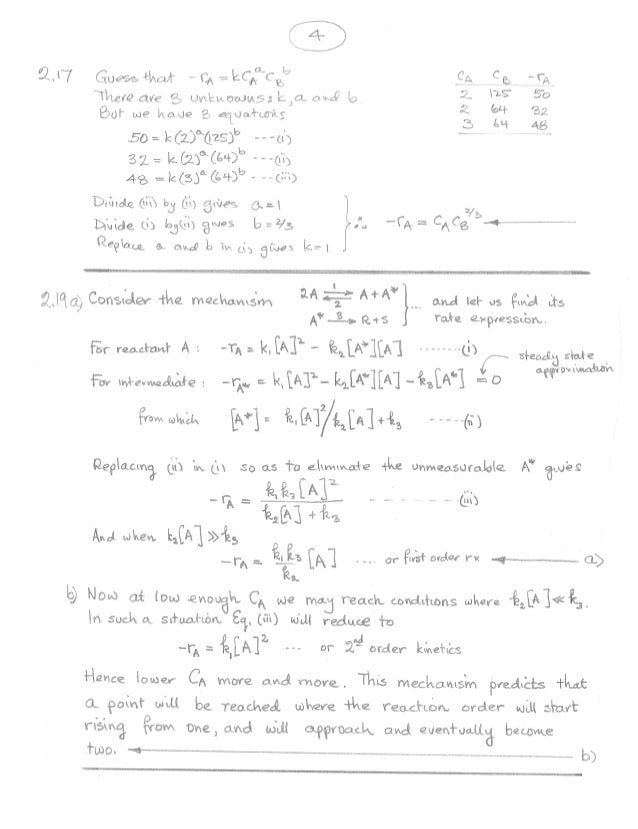 4
2.17 Guess that -rA = kCA^a CB^b
CA CB -rA
There are 3 unknowns: k, a and b.
2 125 50
But we have 3 equations
2 64 32
3 64 48
50 = k(2)^a(125)^b ---(i)
32 = k(2)^a(64)^b ---(ii)
48 = k(3)^a(64)^b ---(iii)
Divide (iii) by (ii) gives a = 1
Divide (i) by (ii) gives b = 2/3
∴ -rA = CA CB^2/3
Replace a and b in (i) gives k = 1
2.19 a) Consider the mechanism 2A ⇌ A + A* ... and let us find its
1
2
A* → R + S rate expression.
3
For reactant A: -rA = k₁[A]² - k₂[A*][A] .......(i)
steady state
approximation
For intermediate: -rA* = k₁[A]² - k₂[A*][A] - k₃[A*] = 0
from which [A*] = k₁[A]²/k₂[A] + k₃ -----(ii)
Replacing (ii) in (i) so as to eliminate the unmeasurable A* gives
-rA = k₁k₃[A]² / k₂[A] + k₃ ------(iii)
And when k₂[A] >> k₃
-rA = k₁k₃/k₂ [A] .... or first order rx a)
b) Now at low enough CA we may reach conditions where k₂[A] << k₃.
In such a situation Eq. (iii) will reduce to
-rA = k₁[A]² ... or 2nd order kinetics
Hence lower CA more and more. This mechanism predicts that
a point will be reached where the reaction order will start
rising from one, and will approach and eventually become
two. b)